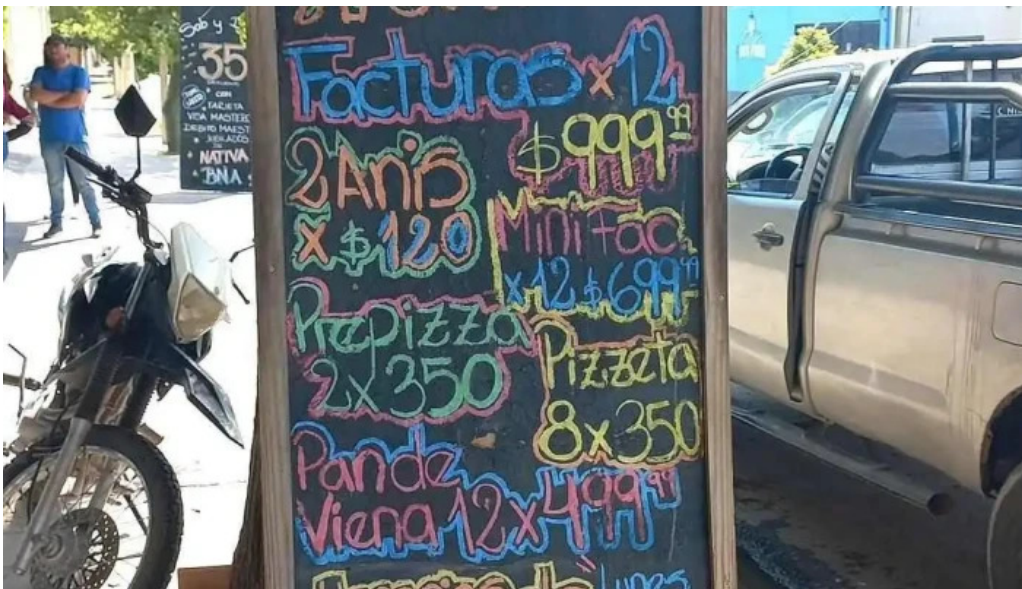 Sab y
35
CON
TARJETA
VISA MASTERC
DEBITO MAEST
JUBILADOS
NATIVA
BNA
Facturas x 12
$ 999 99
2 Anis
x $ 120
Mini Fac.
x 12 $ 699 99
Prepizza
2 x 350
Pizzeta
8 x 350
Pan de
Viena 12 x 499 99
Lunes